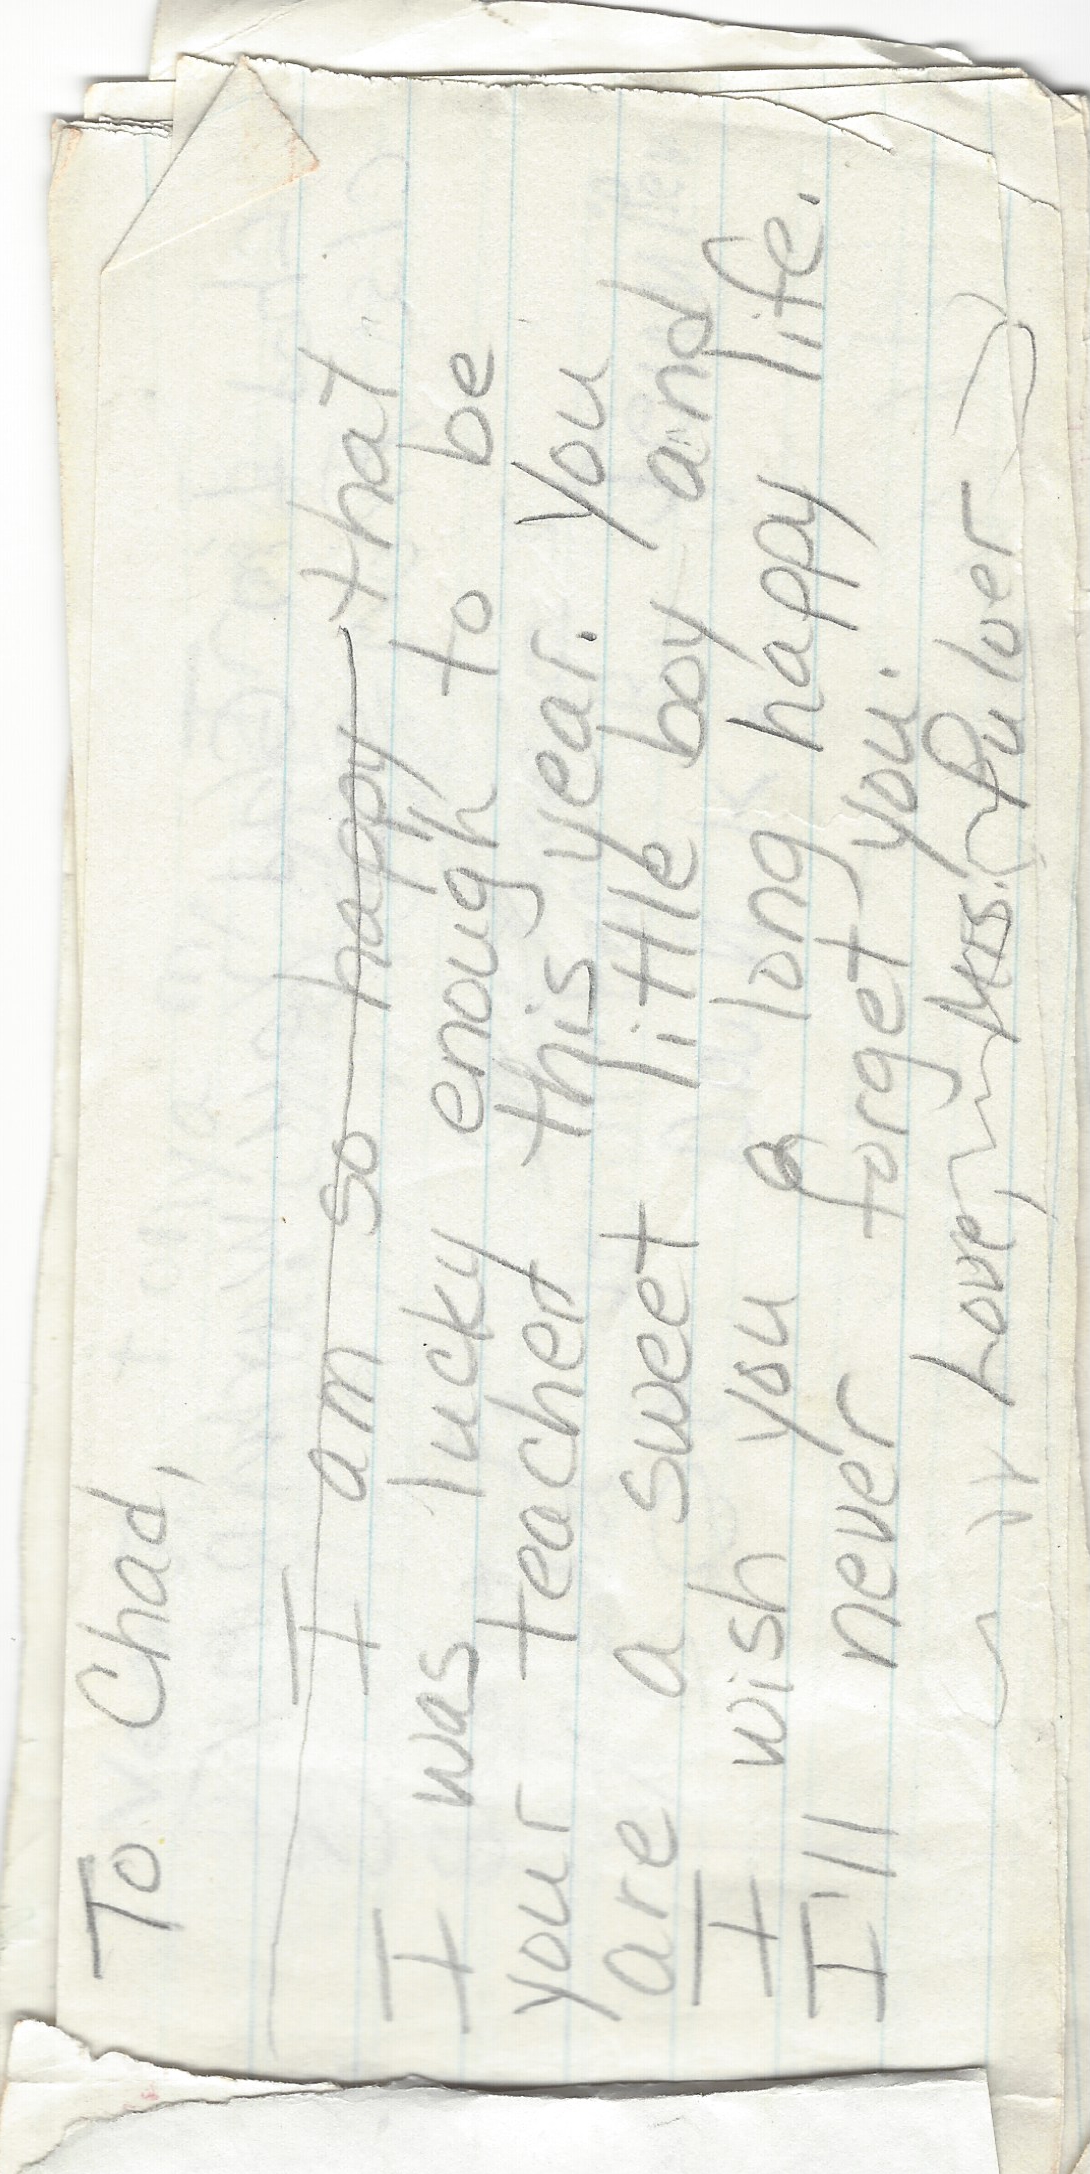 To Chad,
I am so happy that
I was lucky enough to be
your teacher this year. You
are a sweet little boy and
I wish you a long happy life.
I'll never forget you.
Love, Mrs. Pulver